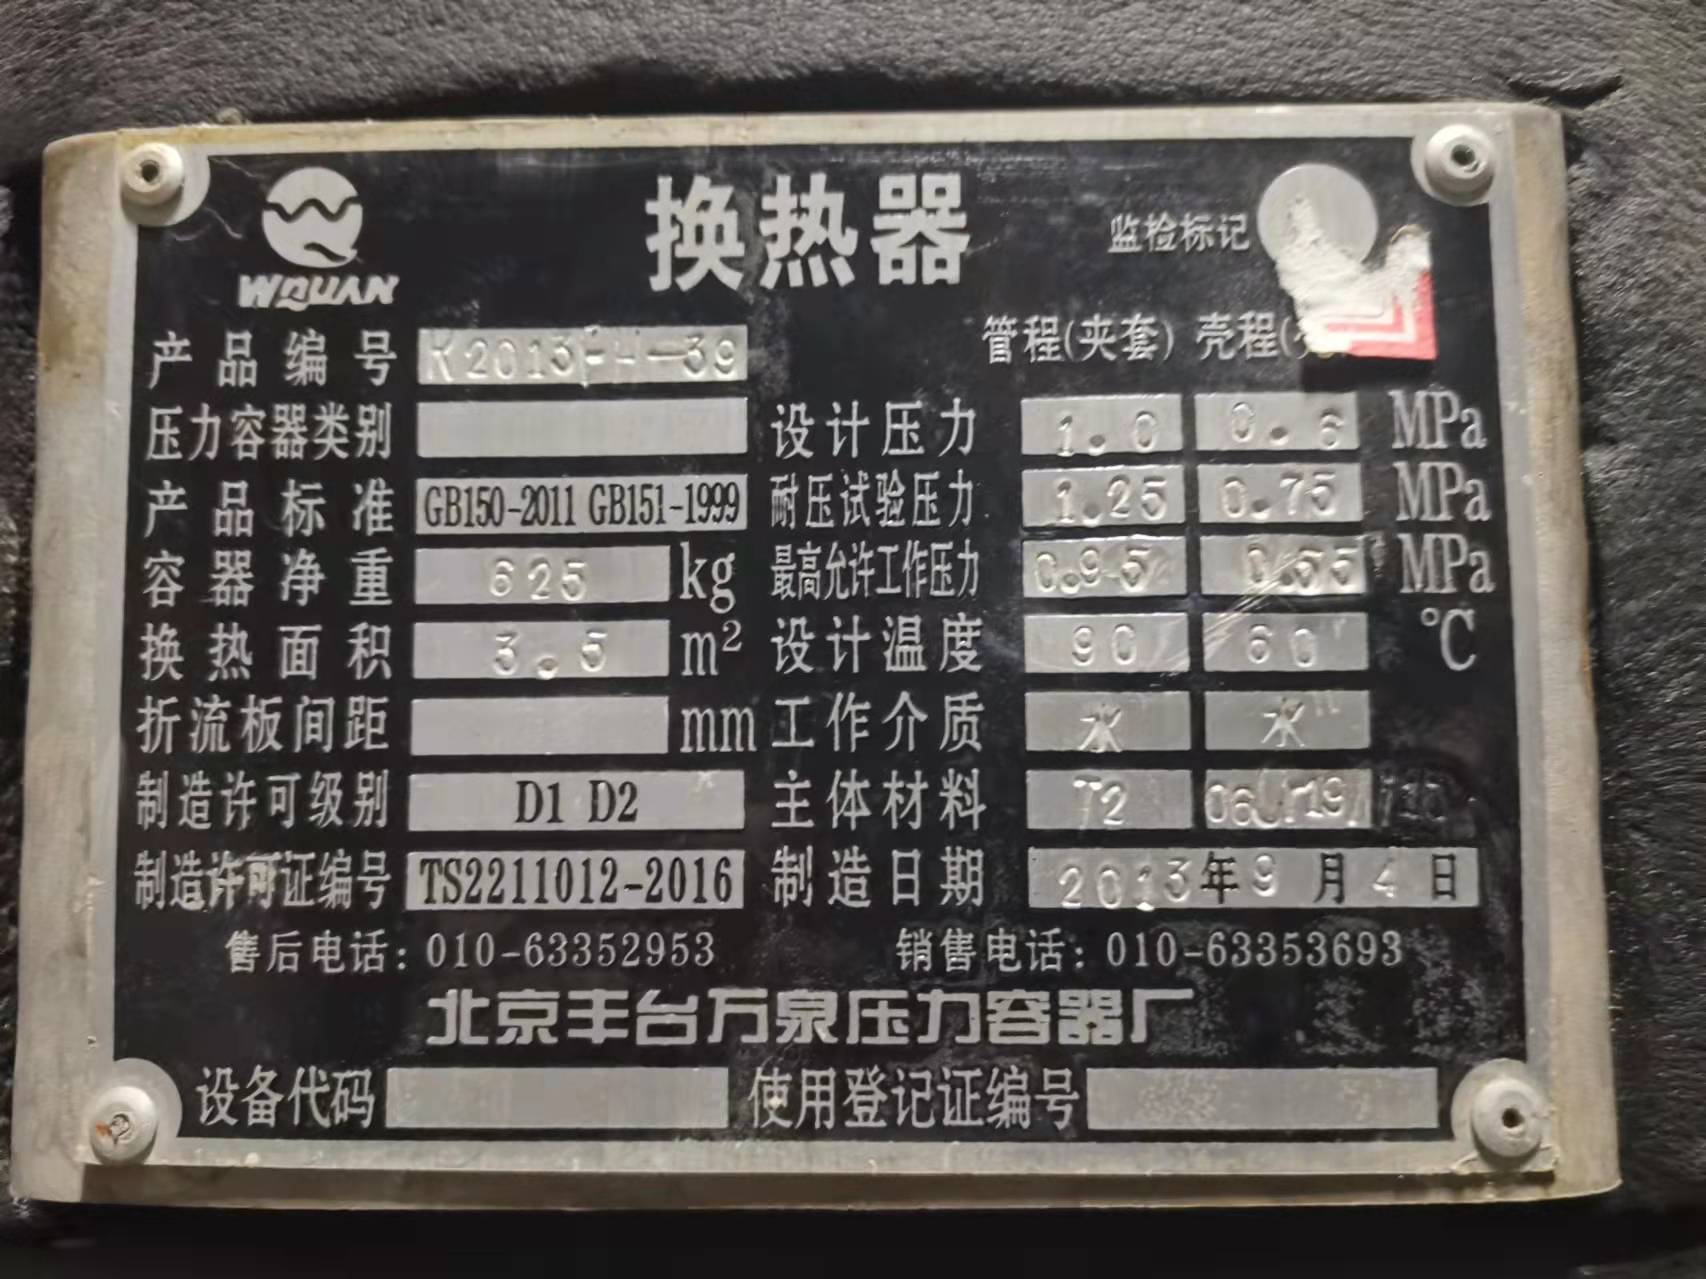 WQUAN
换热器
监检标记
管程(夹套) 壳程(
产品编号 R2013FH-39
压力容器类别
设计压力 1.0 0.6 MPa
产品标准 GB150-2011 GB151-1999
耐压试验压力 1.25 0.75 MPa
容器净重 625 kg
最高允许工作压力 0.95 0.55 MPa
换热面积 3.5 m²
设计温度 90 60 ℃
折流板间距 mm
工作介质 水 水
制造许可级别 D1 D2
主体材料 T2
制造许可证编号 TS2211012-2016
制造日期 2013年9月4日
售后电话: 010-63352953
销售电话: 010-63353693
北京丰台万泉压力容器厂
设备代码
使用登记证编号